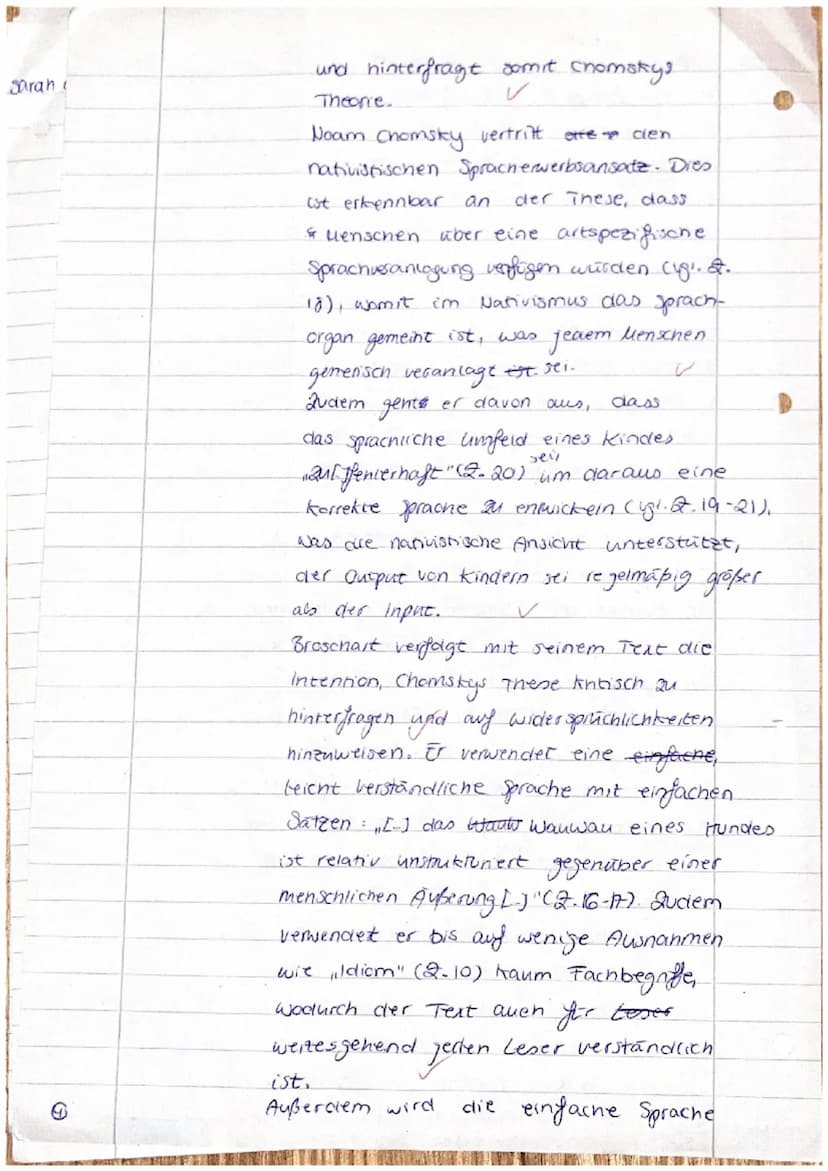 Sarah
und hinterfragt somit Chomskys
Theorie.
Noam Chomsky vertritt den
nativistischen Spracherwerbsansatz. Dies
ist erkennbar an der These, dass
Menschen über eine artspezifische
Sprachveranlagung verfügen würden (vgl. Z.
18), womit im Nativismus das Sprach-
organ gemeint ist, was jedem Menschen
genetisch veranlagt ist sei.
Zudem geht er davon aus, dass
das sprachliche Umfeld eines Kindes
sei
„lückenhaft" (Z. 20) um daraus eine
korrekte Sprache zu entwickeln (vgl. Z. 19-21),
was die nativistische Ansicht unterstützt,
der Output von Kindern sei regelmäßig größer
als der Input.
Broschart verfolgt mit seinem Text die
Intention, Chomskys These kritisch zu
hinterfragen und auf widersprüchlichkeiten
hinzuweisen. Er verwendet eine einfache,
leicht verständliche Sprache mit einfachen
Sätzen: „[...] das Wauw Wauwau eines Hundes
ist relativ unstrukturiert gegenüber einer
menschlichen Äußerung [...]" (Z. 16-17). Zudem
verwendet er bis auf wenige Ausnahmen
wie „Idiom" (Z. 10) kaum Fachbegriffe,
wodurch der Text auch für Leser
weitesgehend jeden Leser verständlich
ist.
Außerdem wird die einfache Sprache
4